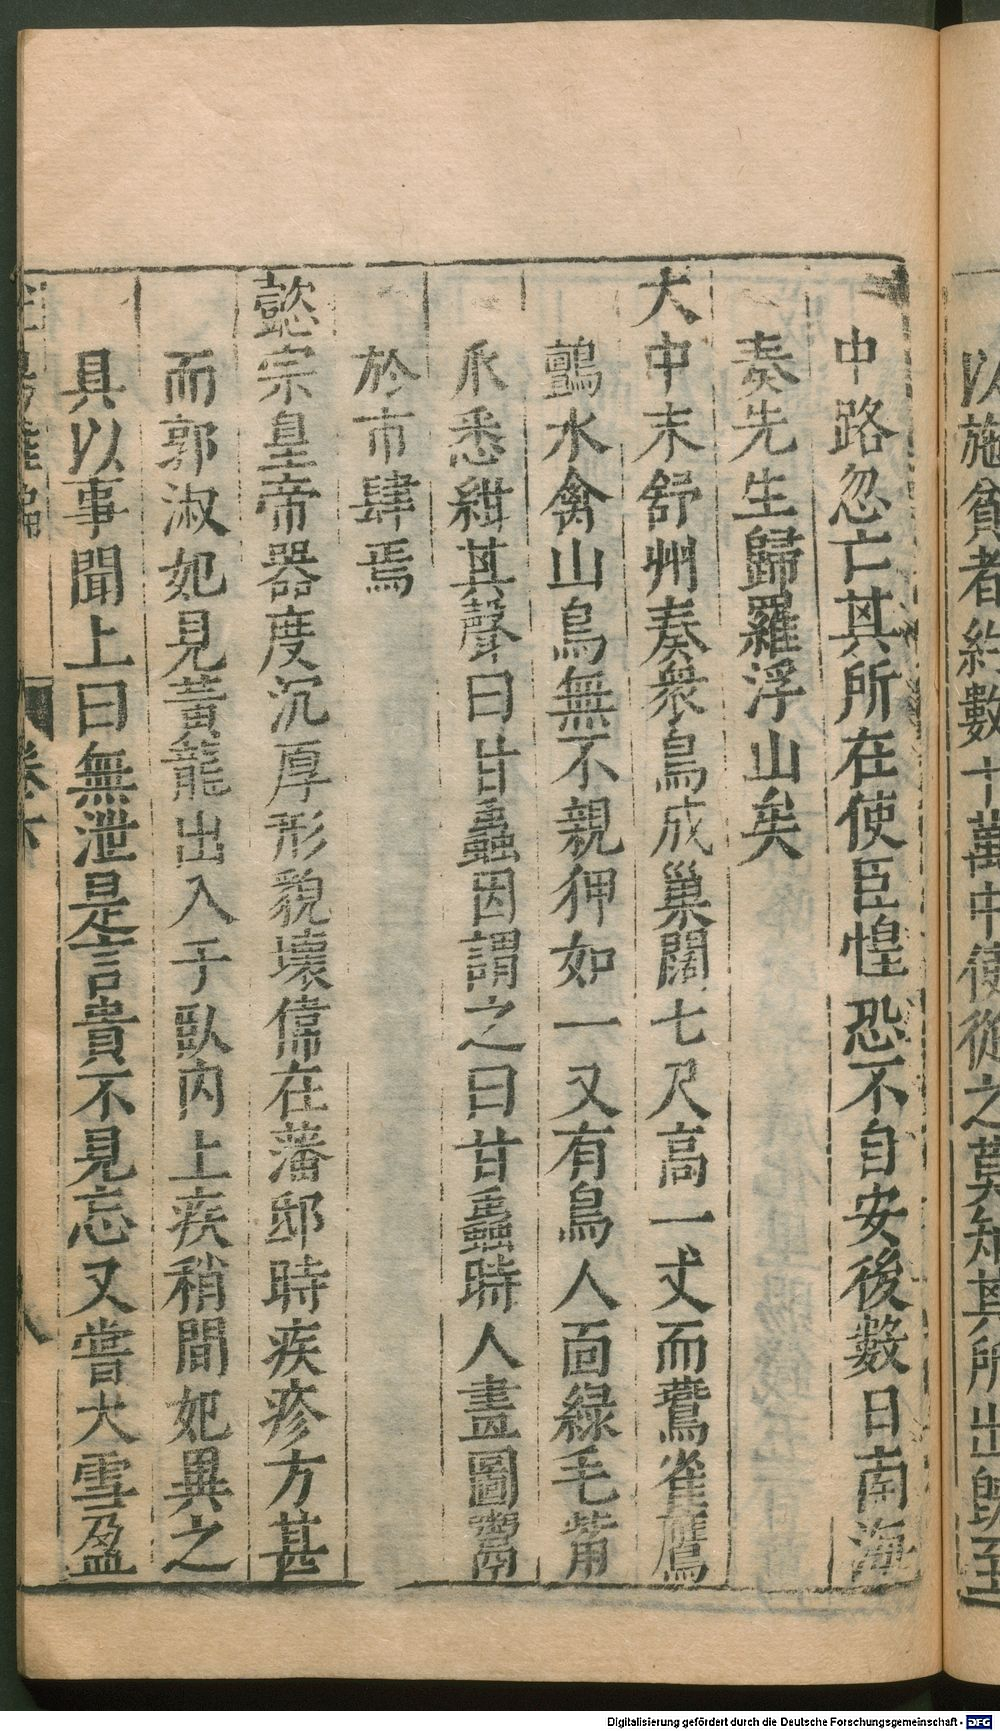 以施貧者約數十萬中使從之莫知其所出既至
中路忽亡其所在使臣惶恐不自安後數日南海
奏先生歸羅浮山矣
大中末舒州奏衆鳥成巢闊七尺高一丈而鷰雀鷹
鸇水禽山鳥無不親狎如一又有鳥人面綠毛觜
爪悉紺其聲曰甘蟲因謂之曰甘蟲時人畫圖鬻
於市肆焉
懿宗皇帝器度沉厚形貌壞偉在藩邸時疾疹方甚
而郭淑妃見黃龍出入于臥內上疾稍間妃異之
具以事聞上曰無泄是言貴不見忘又嘗大雪盈
卷六
八
Digitalisierung gefördert durch die Deutsche Forschungsgemeinschaft - DFG